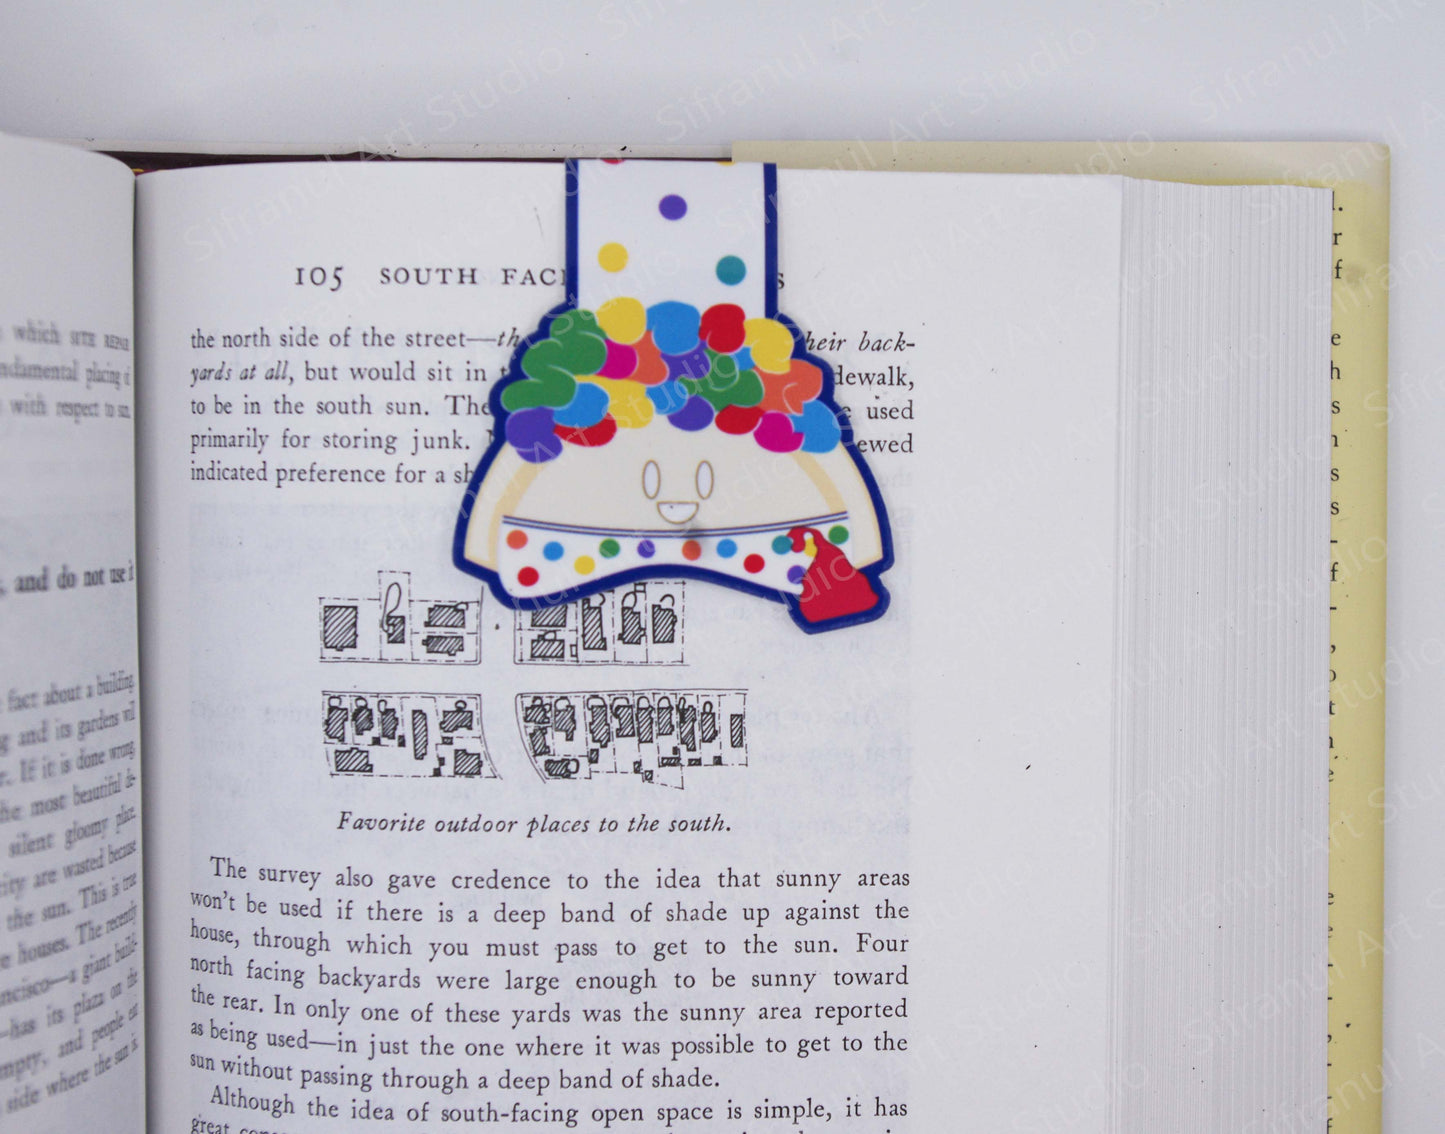 which SITE REPAIR
ndamental placing of
with respect to sun,
, and do not use it
fact about a building.
g and its gardens will
r. If it is done wrong,
he most beautiful de-
silent gloomy place.
city are wasted because
the sun. This is true
e houses. The recently
ncisco—a giant build-
—has its plaza on the
mpty, and people eat
side where the sun is.
105 SOUTH FACI S
the north side of the street—th heir back-
yards at all, but would sit in t dewalk,
to be in the south sun. The e used
primarily for storing junk. ewed
indicated preference for a sh
Favorite outdoor places to the south.
The survey also gave credence to the idea that sunny areas
won't be used if there is a deep band of shade up against the
house, through which you must pass to get to the sun. Four
north facing backyards were large enough to be sunny toward
the rear. In only one of these yards was the sunny area reported
as being used—in just the one where it was possible to get to the
sun without passing through a deep band of shade.
Although the idea of south-facing open space is simple, it has
great
Sifranul Art Studio